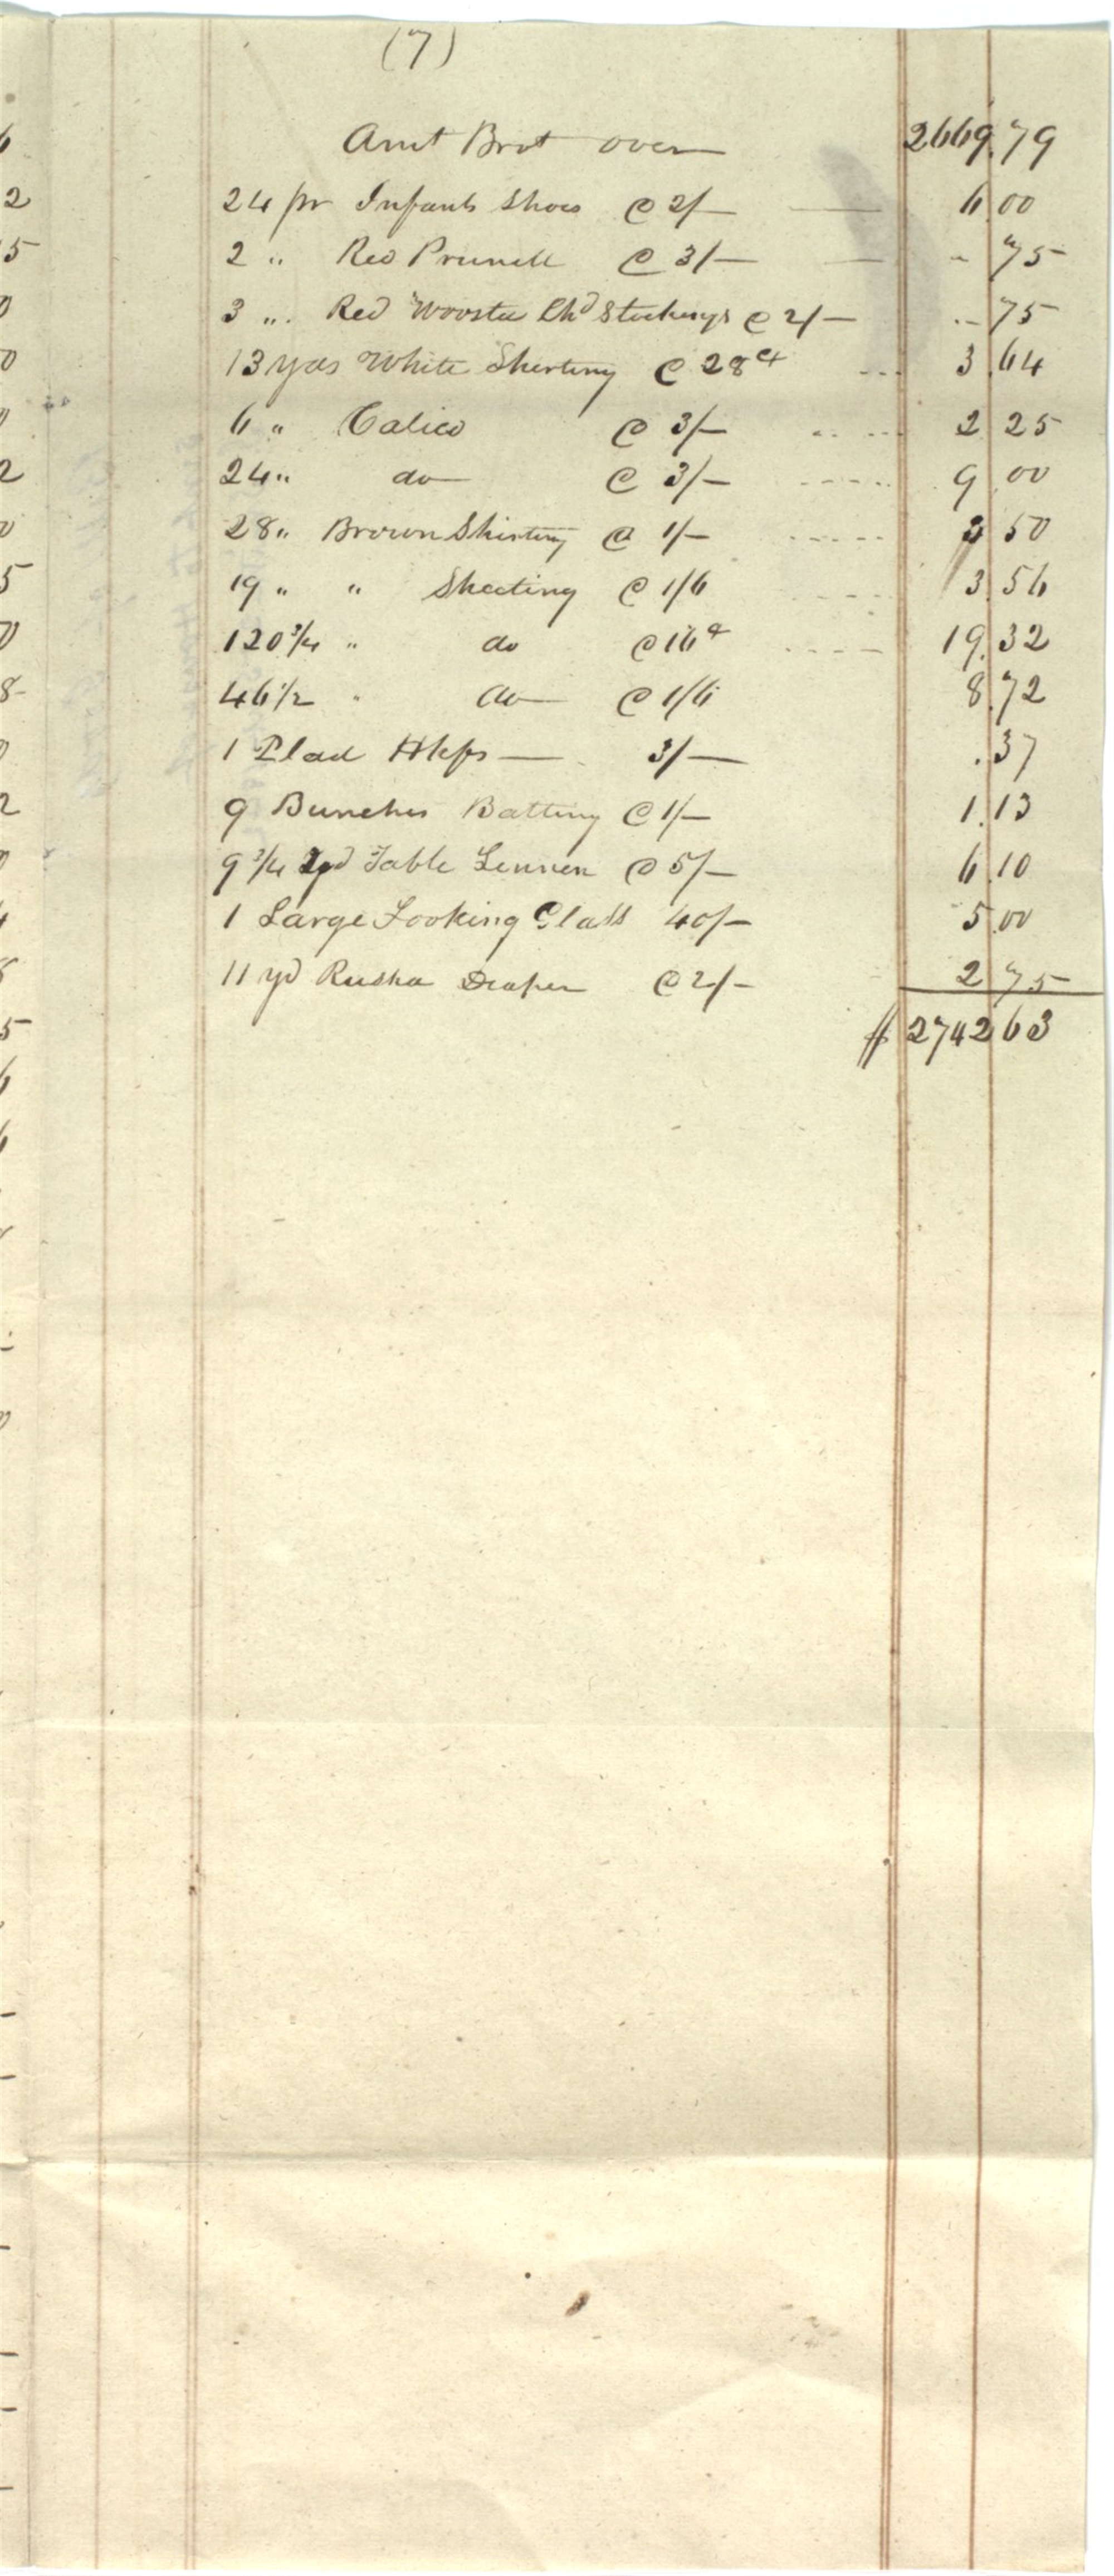 (7)
Amt Brot over 2669.79
24 pr Infants Shoes @ 2/- 6.00
2 " Red Prunell @ 3/- - 75
3 " Red Wooster Chd Stockings @ 2/- - 75
13 yds White Shirting @ 28 ct 3.64
6 " Calico @ 3/- 2 25
24 " do @ 3/- 9.00
28 " Brown Shirting @ 1/- 3 50
19 " " Sheeting @ 1/6 3.56
120 3/4 " do @ 16 ct 19.32
46 1/2 " do @ 1/6 8.72
1 Plad Hkfs - 3/- .37
9 Bunches Batting @ 1/- 1.13
9 3/4 yd Table Linnen @ 5/- 6.10
1 Large Looking Glass 40/- 5.00
11 yd Rusha Deaper @ 2/- 2 75
$ 2742 63
6
2
5
0
0
2
0
5
0
8
0
2
5